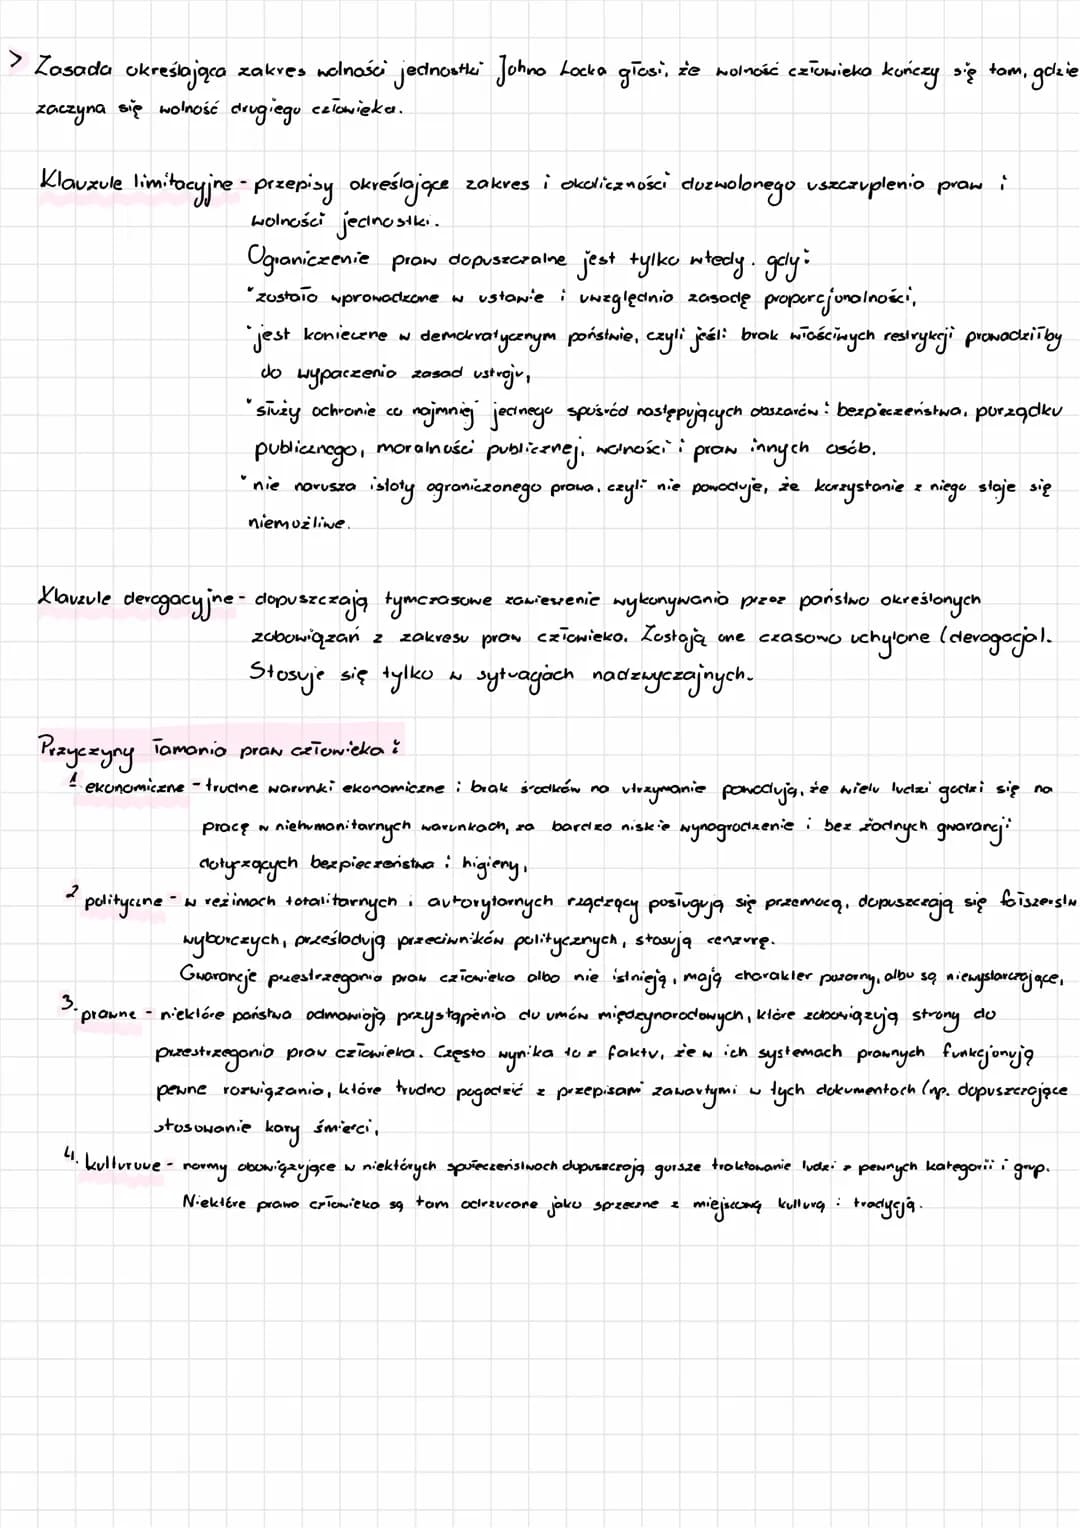 > Zasada określająca zakres wolności jednostki Johna Locka głosi, że wolność człowieka kończy się tam, gdzie
zaczyna się wolność drugiego człowieka.
Klauzule limitacyjne - przepisy określające zakres i okoliczności dozwolonego uszczuplenia praw i
wolności jednostki.
Ograniczenie praw dopuszczalne jest tylko wtedy. gdy:
*zostało wprowadzone w ustawie i uwzględnia zasadę proporcjonalności,
*jest konieczne w demokratycznym państwie, czyli jeśli brak właściwych restrykcji prowadziłby
do wypaczenia zasad ustroju,
*służy ochronie co najmniej jednego spośród następujących obszarów: bezpieczeństwa, porządku
publicznego, moralności publicznej, wolności i praw innych osób.
*nie narusza istoty ograniczonego prawa, czyli nie powoduje, że korzystanie z niego staje się
niemożliwe.
Klauzule derogacyjne - dopuszczają tymczasowe zawieszenie wykonywania przez państwo określonych
zobowiązań z zakresu praw człowieka. Zostają one czasowo uchylone (derogacja).
Stosuje się tylko w sytuacjach nadzwyczajnych.
Przyczyny łamania praw człowieka:
1 ekonomiczne - trudne warunki ekonomiczne i brak środków na utrzymanie powodują, że wielu ludzi godzi się na
pracę w niehumanitarnych warunkach, za bardzo niskie wynagrodzenie i bez żadnych gwarancji
dotyczących bezpieczeństwa i higieny,
2 polityczne - w reżimach totalitarnych i autorytarnych rządzący posługują się przemocą, dopuszczają się fałszerstw
wyborczych, prześladują przeciwników politycznych, stosują cenzurę.
Gwarancje przestrzegania praw człowieka albo nie istnieją, mają charakter pozorny, albo są niewystarczające,
3. prawne - niektóre państwa odmawiają przystąpienia do umów międzynarodowych, które zobowiązują strony do
przestrzegania praw człowieka. Często wynika to z faktu, że w ich systemach prawnych funkcjonują
pewne rozwiązania, które trudno pogodzić z przepisami zawartymi w tych dokumentach (np. dopuszczające
stosowanie kary śmierci,
4. kulturowe - normy obowiązujące w niektórych społeczeństwach dopuszczają gorsze traktowanie ludzi z pewnych kategorii i grup.
Niektóre prawa człowieka są tam odrzucane jako sprzeczne z miejscową kulturą i tradycją.